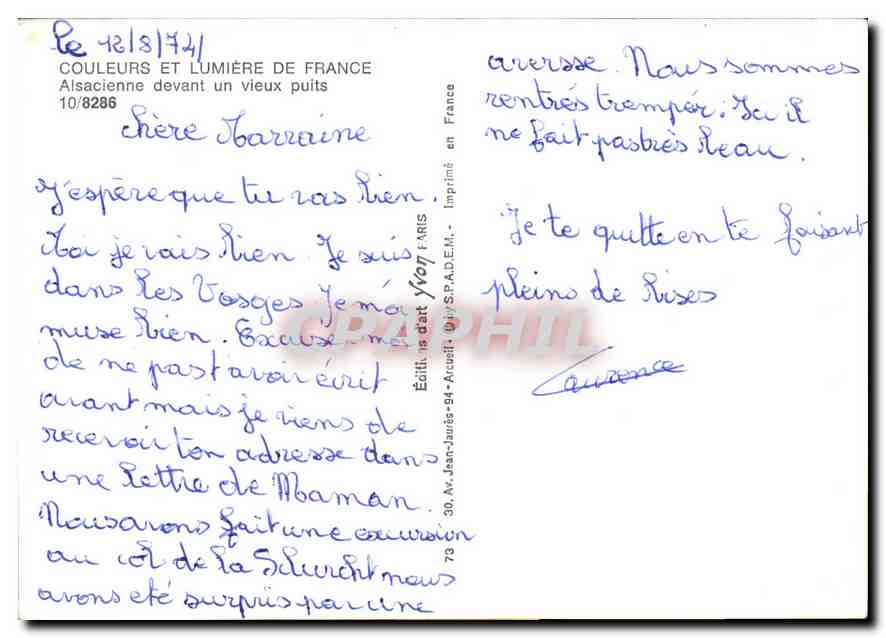 le 12/8/74/
COULEURS ET LUMIÈRE DE FRANCE
Alsacienne devant un vieux puits
10/8286
Chère Marraine
J'espère que tu vas bien.
Moi je vais bien Je suis
dans les Vosges Je m'a
muse bien. Excuse-moi
de ne pas t'avoir écrit
avant mais je viens de
recevoir ton adresse dans
une lettre de Maman.
Nous avons fait une excursion
au col de la Schurcht nous
avons été surpris par une
averse. Nous sommes
rentrés trempés. Ici il
ne fait pas très beau.
Je te quitte en te faisant
pleins de bises
Laurence
Éditions d'art Yvon PARIS
73 30, Av. Jean-Jaurès - 94 - Arcueil - S.P.A.D.E.M. - Imprimé en France
CPAPHIL